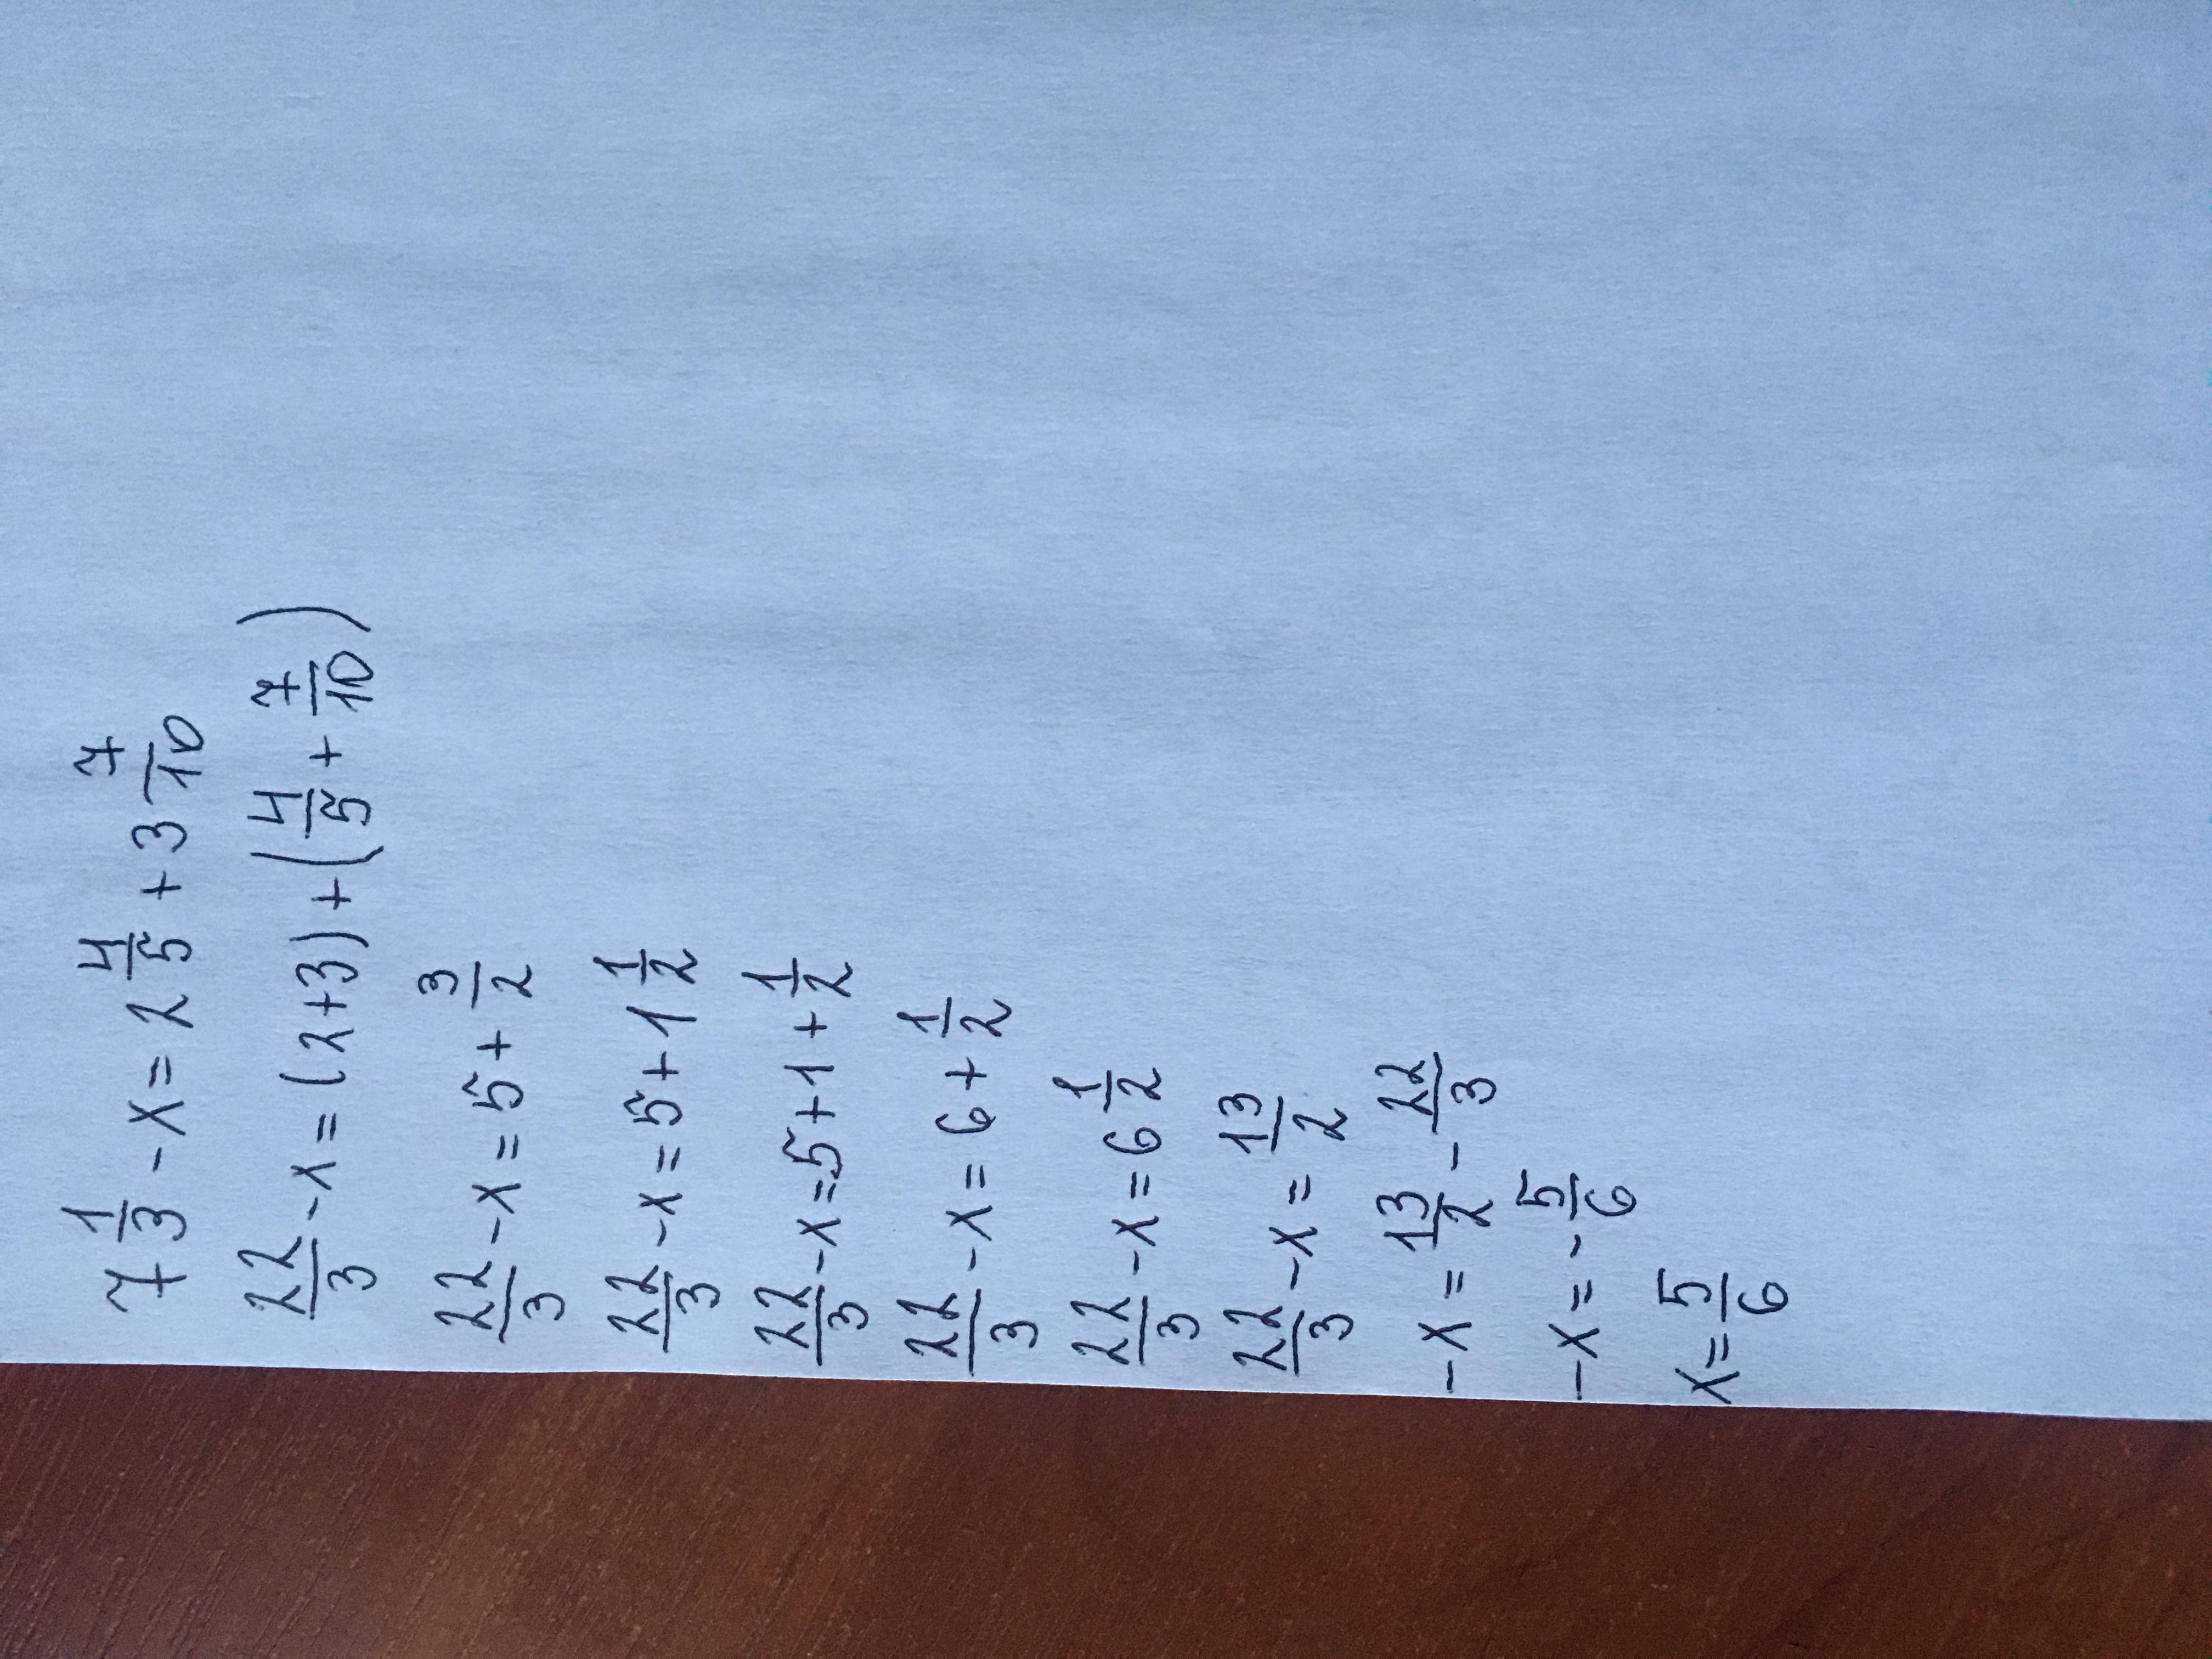 7 1/3 - x = 2 4/5 + 3 7/10
22/3 - x = (2+3) + (4/5 + 7/10)
22/3 - x = 5 + 3/2
22/3 - x = 5 + 1 1/2
22/3 - x = 5 + 1 + 1/2
22/3 - x = 6 + 1/2
22/3 - x = 6 1/2
22/3 - x = 13/2
- x = 13/2 - 22/3
- x = - 5/6
x = 5/6